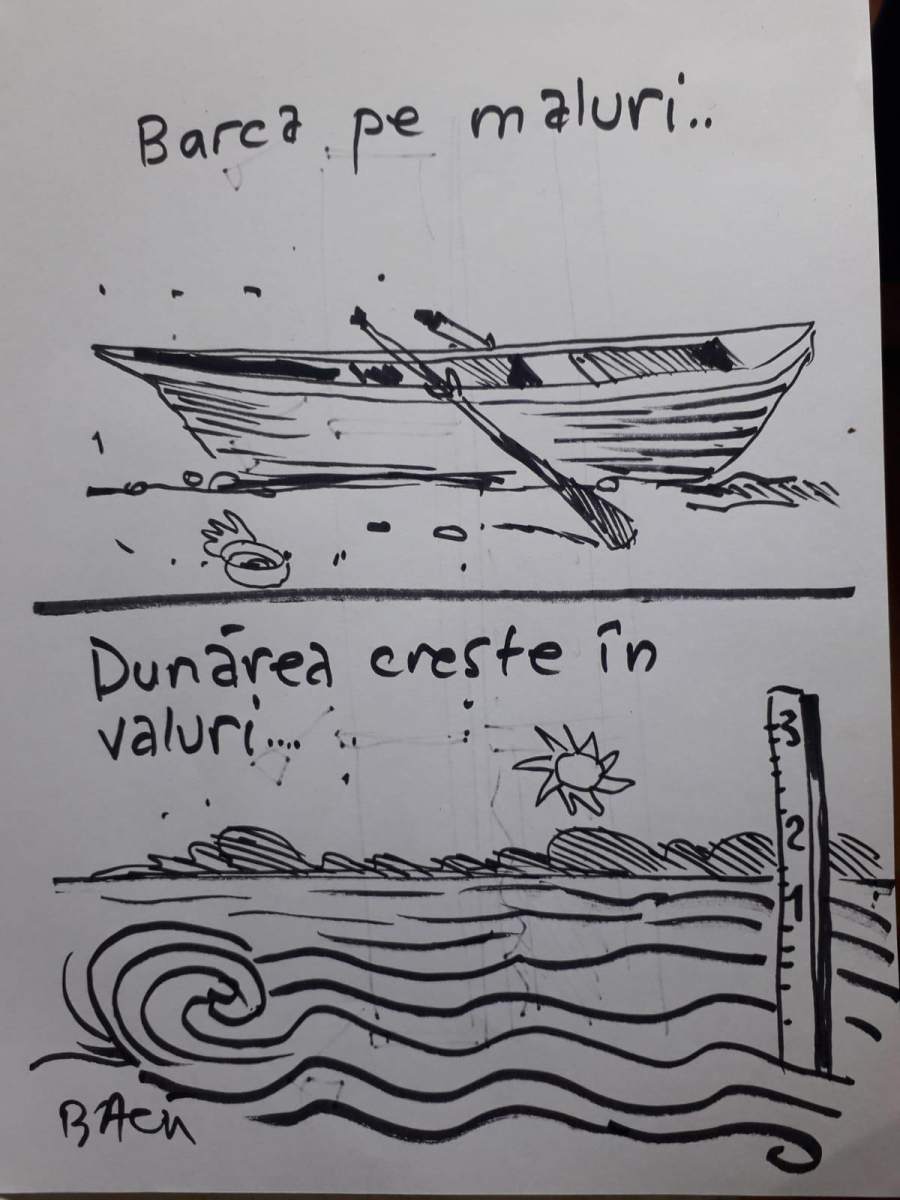 Barca pe maluri..
Dunărea crește în
valuri....
3
2
1
BACU